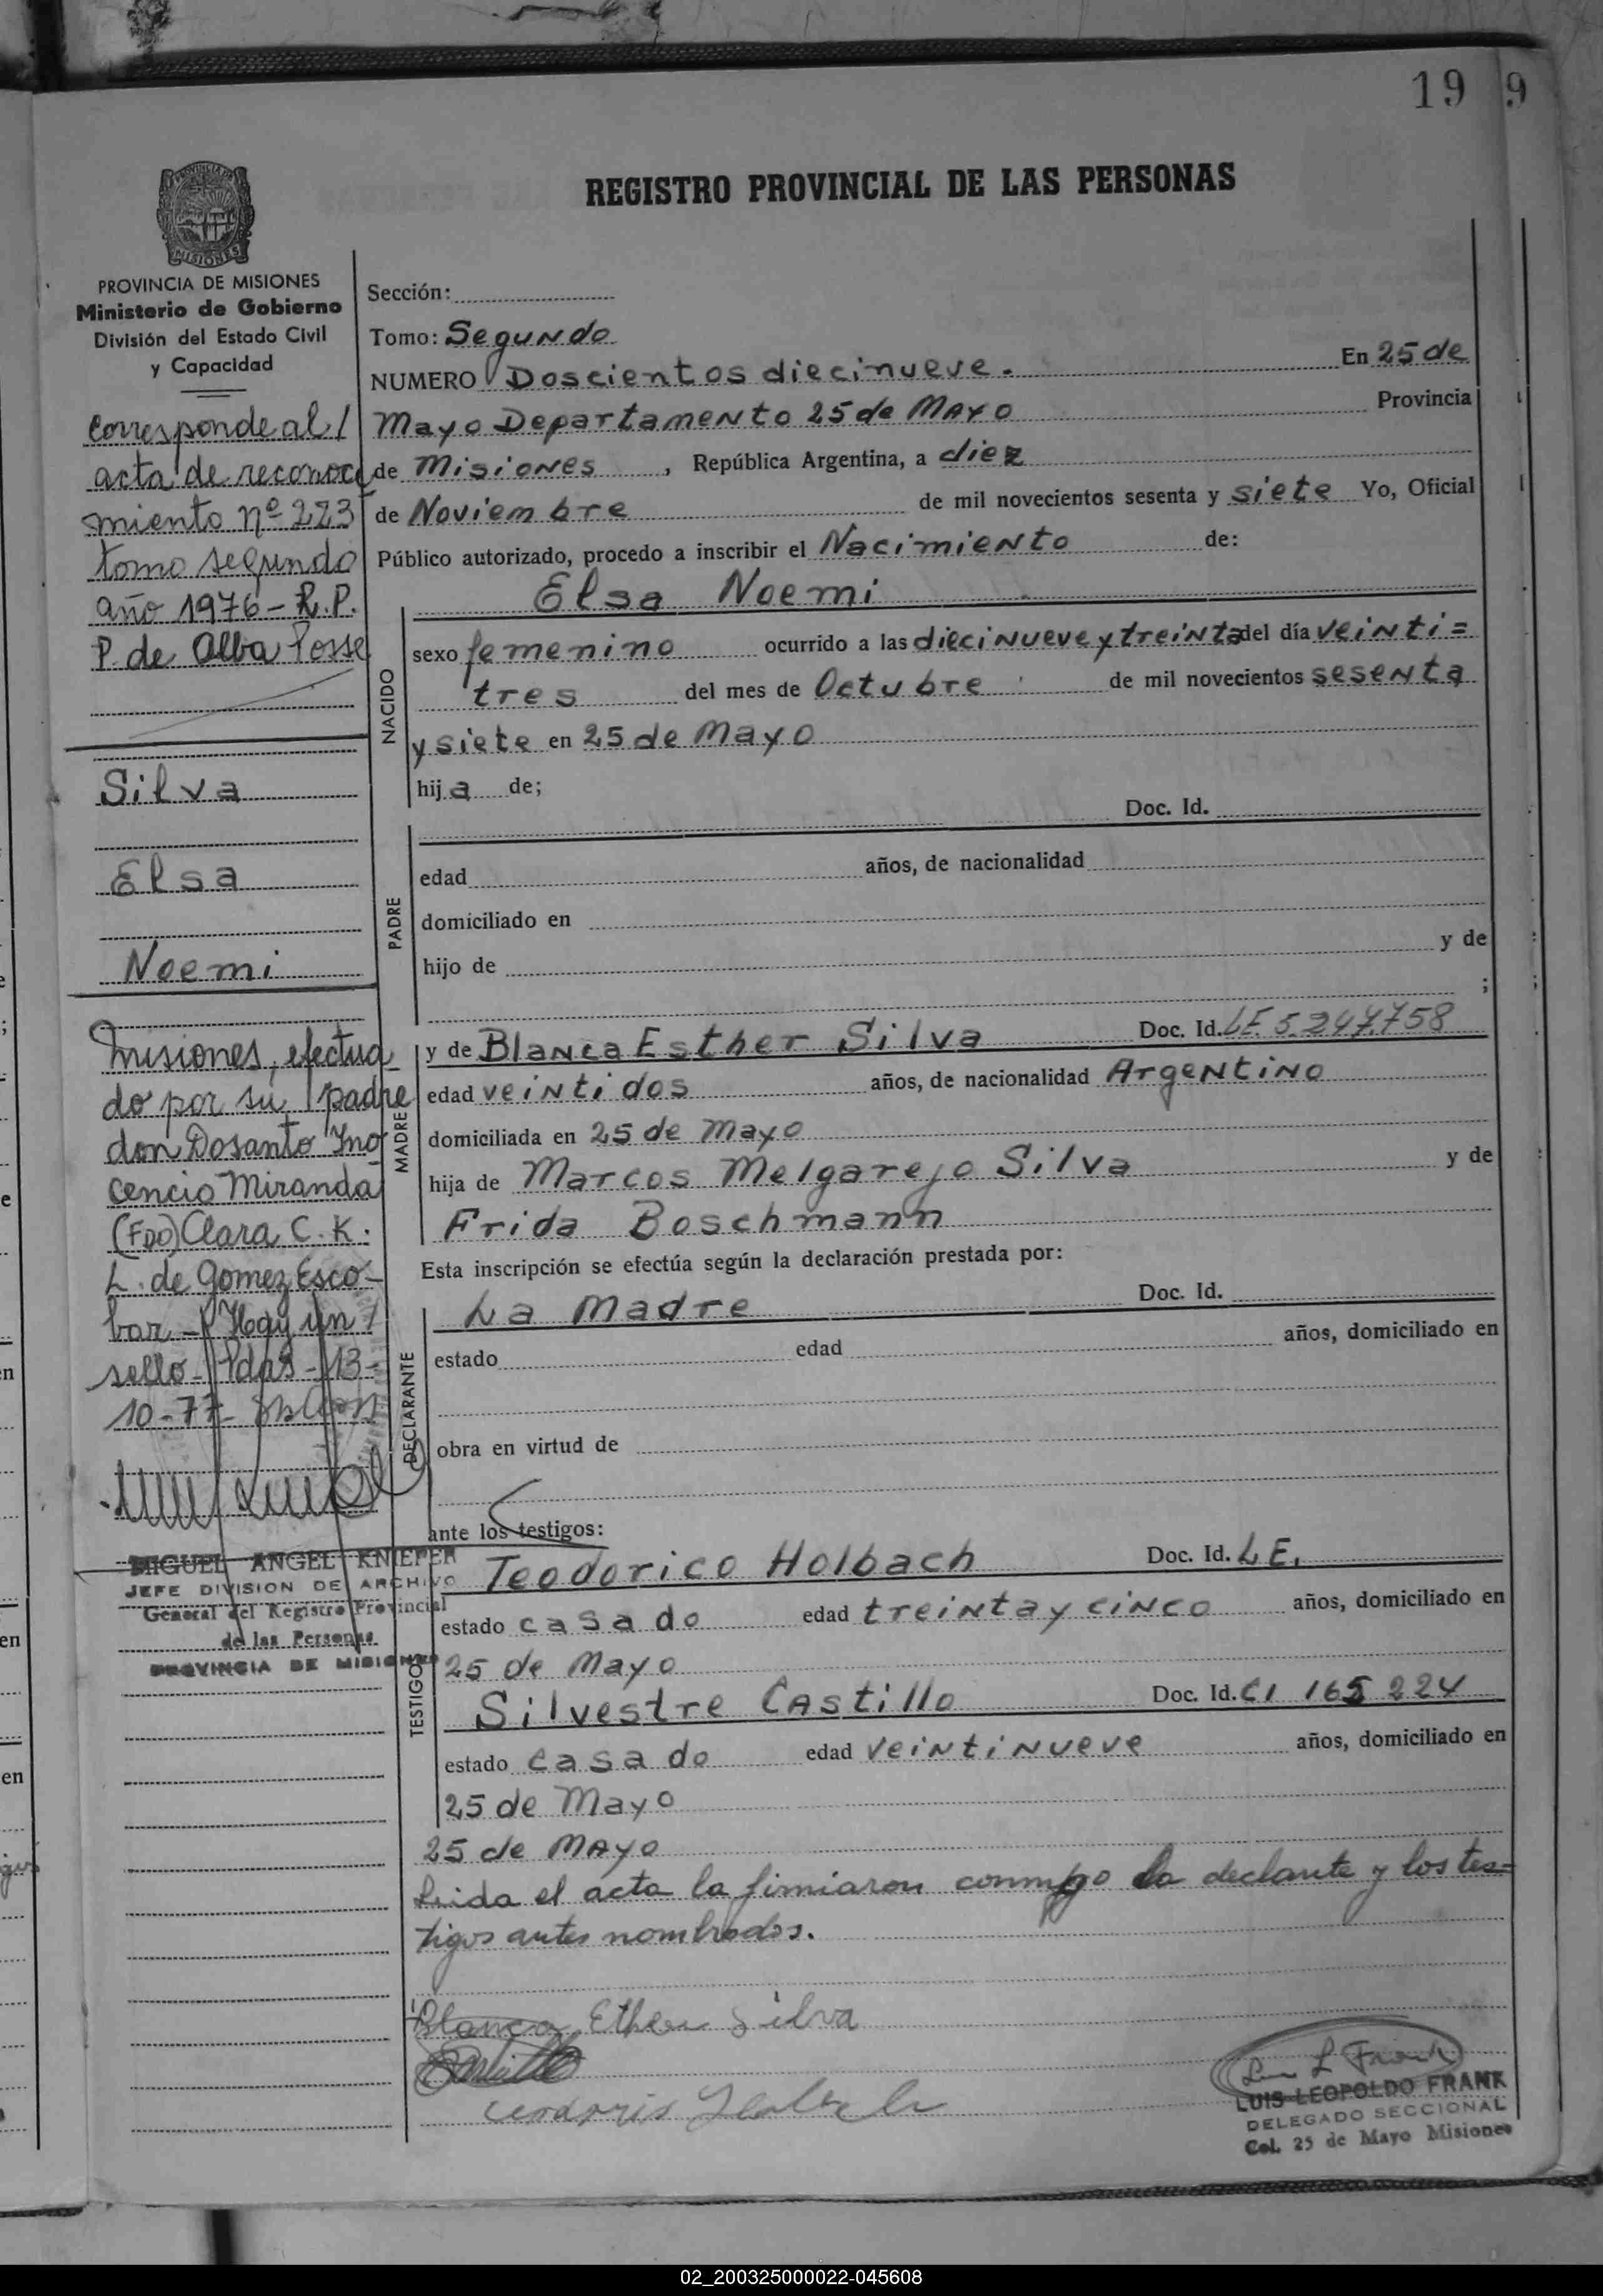 19 9
REGISTRO PROVINCIAL DE LAS PERSONAS
PROVINCIA DE
MISIONES
PROVINCIA DE MISIONES
Ministerio de Gobierno
División del Estado Civil
y Capacidad
corresponde al /
acta de reconoci
miento nº 223
tomo segundo
año 1976 - R.P.
P. de Alba Posse
Silva
Elsa
Noemi
Misiones, efectua
do por su padre
don Dosanto Ino
cencio Miranda
(FDO) Clara C. K.
L. de Gomez Esco-
bar - Hay un /
sello - Pdas - 13 -
10 - 77 -
MIGUEL ANGEL KNIEPER
JEFE DIVISION DE ARCHIVO
General del Registro Provincial
de las Personas
PROVINCIA DE MISIONES
Sección:
Tomo: Segundo
NUMERO Doscientos diecinueve. En 25 de
Mayo Departamento 25 de Mayo Provincia
de Misiones, República Argentina, a diez
de Noviembre de mil novecientos sesenta y siete Yo, Oficial
Público autorizado, procedo a inscribir el Nacimiento de:
NACIDO
Elsa Noemi
sexo femenino ocurrido a las diecinueve y treinta del día veinti =
tres del mes de Octubre de mil novecientos sesenta
y siete en 25 de Mayo
hija de;
PADRE
Doc. Id.
edad años, de nacionalidad
domiciliado en
hijo de y de
;
MADRE
y de Blanca Esther Silva Doc. Id. LE 5.247.758
edad veintidos años, de nacionalidad Argentino
domiciliada en 25 de Mayo
hija de Marcos Melgarejo Silva y de
Frida Boschmann
Esta inscripción se efectúa según la declaración prestada por:
DECLARANTE
La Madre Doc. Id.
estado edad años, domiciliado en
obra en virtud de
ante los testigos:
TESTIGOS
Teodorico Holbach Doc. Id. L E.
estado casado edad treinta y cinco años, domiciliado en
25 de Mayo
Silvestre Castillo Doc. Id. CI 165 224
estado casado edad veintinueve años, domiciliado en
25 de Mayo
25 de Mayo
Leida el acta la fimiaron conmigo la declante y los tes=
tigos antes nombrados.
Blanca Ether Silva
Castillo
L Frank
LUIS LEOPOLDO FRANK
DELEGADO SECCIONAL
Col. 25 de Mayo Misiones
02_200325000022-045608